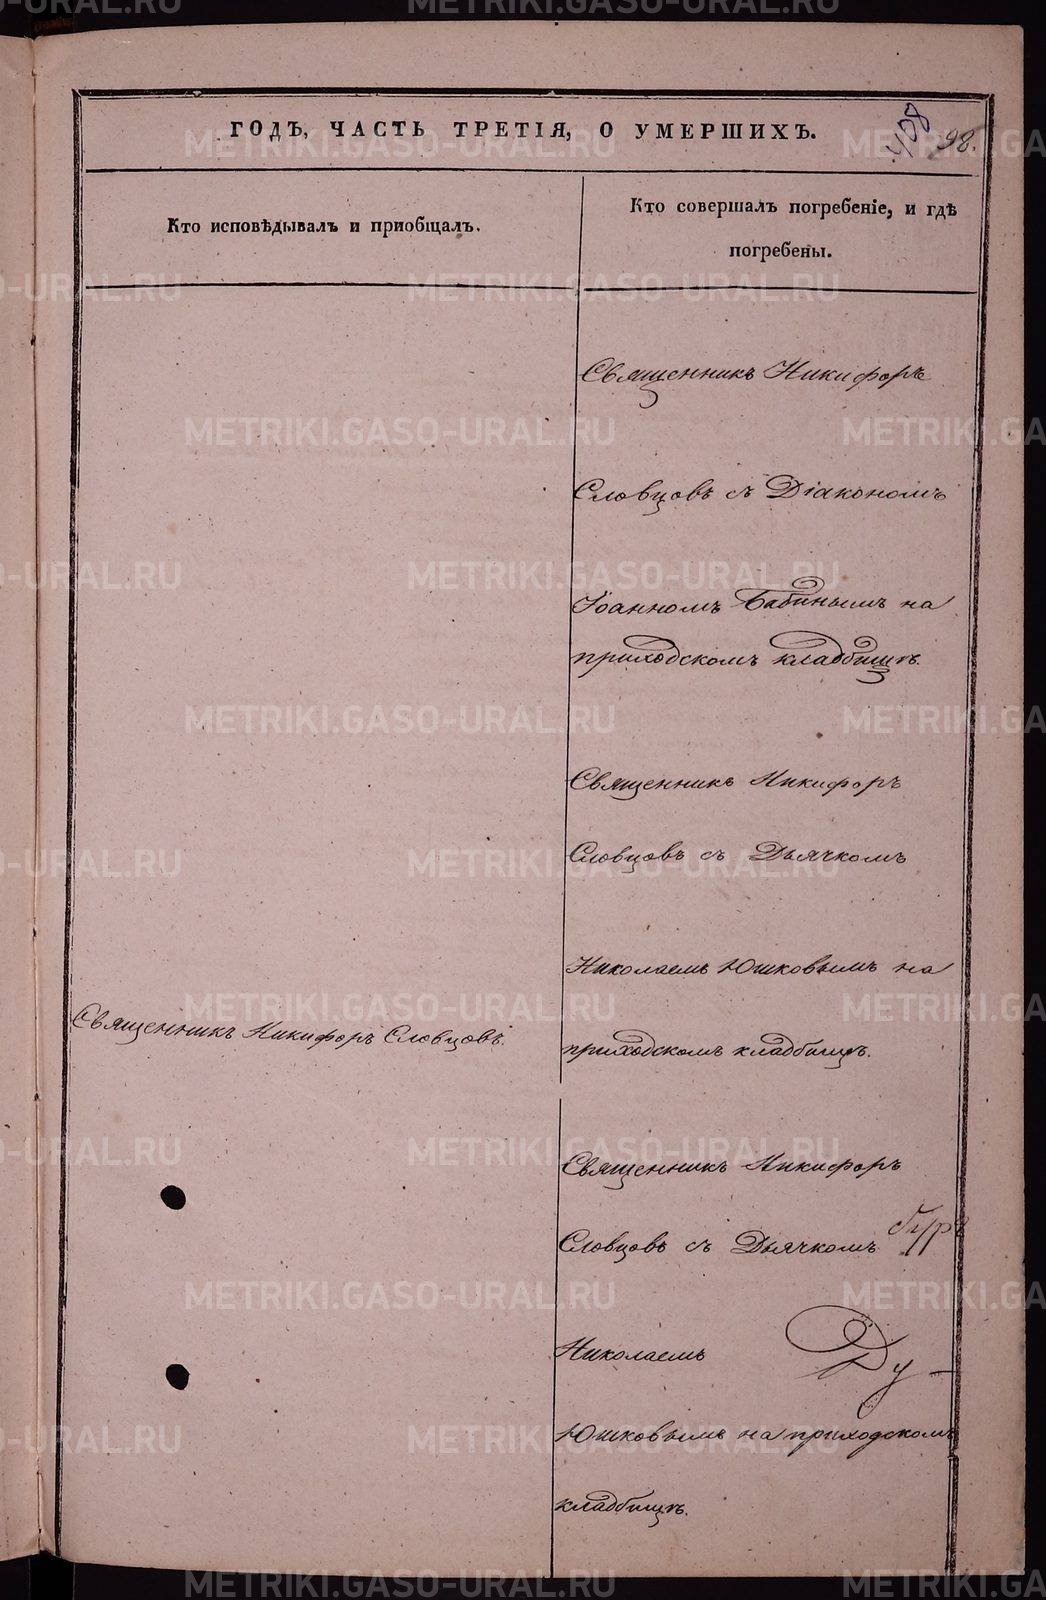 ГОДЪ, ЧАСТЬ ТРЕТІЯ, О УМЕРШИХЪ.
408
98.
Кто исповѣдывалъ и приобщалъ.
Кто совершалъ погребеніе, и гдѣ
погребены.
Священникъ Никифоръ
Словцовъ съ Діакономъ
Іоанномъ Бабинымъ на
приходскомъ кладбищѣ.
Священникъ Никифоръ
Словцовъ съ Дьячкомъ
Николаемъ Юшковымъ на
приходскомъ кладбищѣ.
Священникъ Никифоръ Словцовъ.
Священникъ Никифоръ
Словцовъ съ Дьячкомъ
Николаемъ
Ду-
Юшковымъ на приходскомъ
кладбищѣ.
METRIKI.GASO-URAL.RU